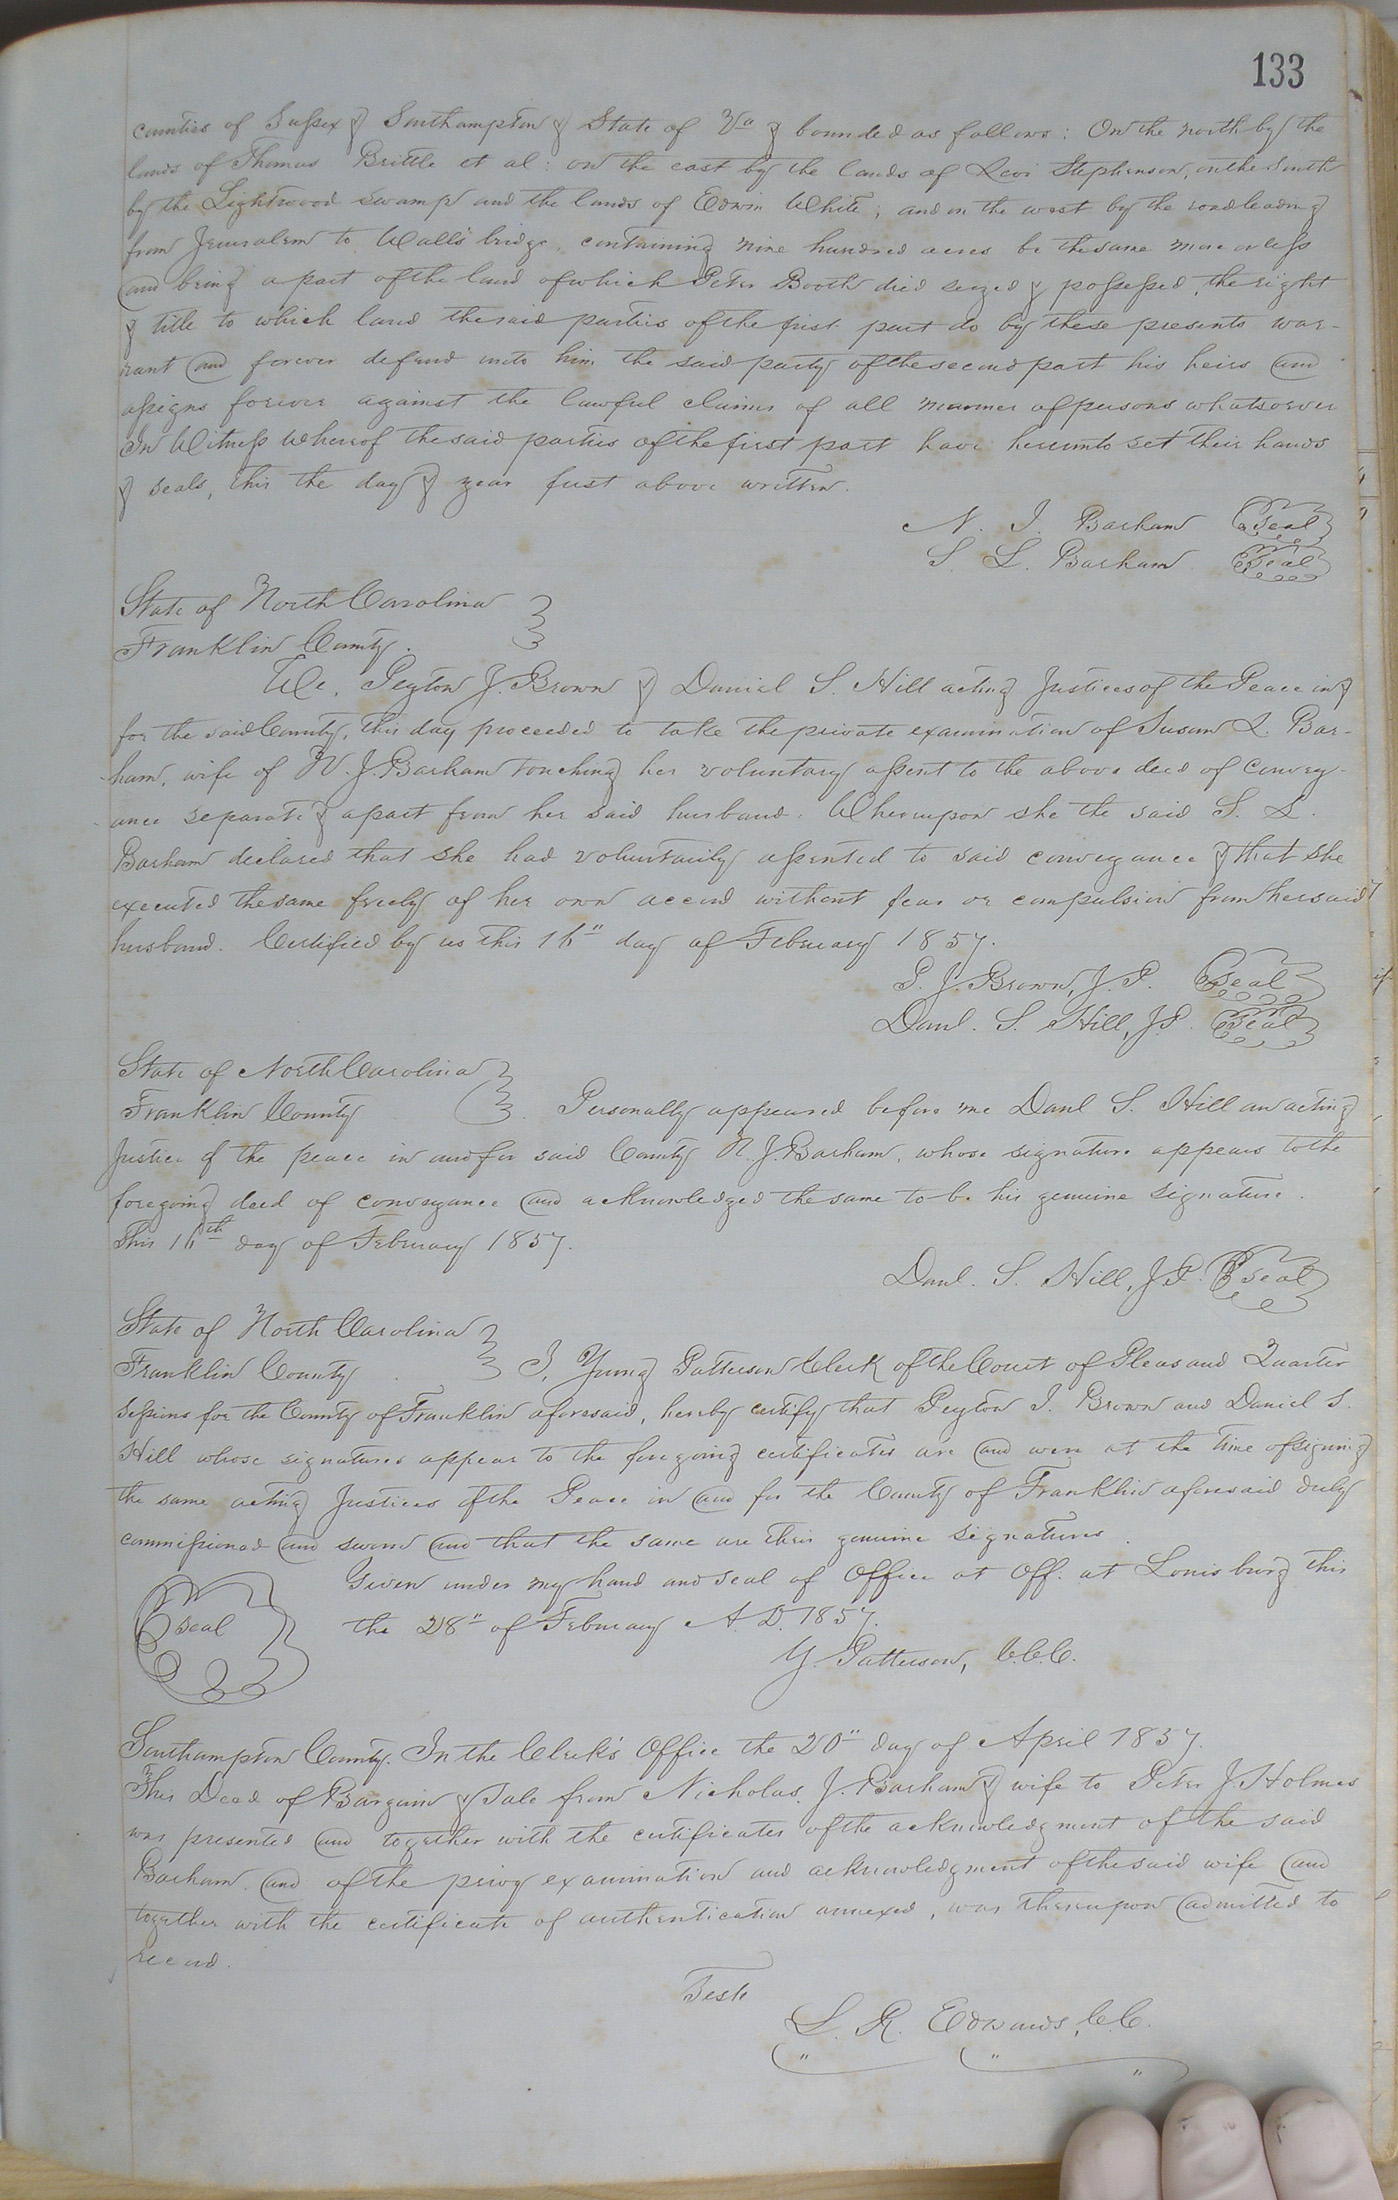 133
counties of Sussex & Southampton & State of Va & bounded as follows: On the north by the
lands of Thomas Brittle et al: on the east by the lands of Levi Stephenson, on the South
by the Lightwood Swamp and the lands of Edwin White; and on the west by the road leading
from Jerusalem to Wall's bridge, containing nine hundred acres be the same more or less
and being a part of the land of which Peter Booth died seized & possessed, the right
& title to which land the said parties of the first part do by these presents war-
rant and forever defend unto him the said party of the second part his heirs and
assigns forever against the lawful claims of all manner of persons whatsoever
In Witness Whereof the said parties of the first part have hereunto set their hands
& seals, this the day & year first above written.
N. J. Barham Seal
S. L. Barham Seal
State of North Carolina
Franklin County.
We, Peyton J. Brown & Daniel S. Hill acting Justices of the Peace in &
for the said County, this day proceeded to take the private examination of Susan L. Bar-
ham, wife of N. J. Barham touching her voluntary assent to the above deed of convey-
ance separate & apart from her said husband. Whereupon she the said S. L.
Barham declared that she had voluntarily assented to said conveyance & that she
executed the same freely of her own accord without fear or compulsion from her said
husband. Certified by us this 16" day of February 1857.
P. J. Brown, J.P. Seal
Danl. S. Hill, J.P. Seal
State of North Carolina
Franklin County. Personally appeared before me Danl S. Hill an acting
Justice of the peace in and for said County N. J. Barham, whose signature appears to the
foregoing deed of conveyance and acknowledged the same to be his genuine signature.
This 16th day of February 1857.
Danl. S. Hill, J.P. Seal
State of North Carolina
Franklin County. I, Young Patterson Clerk of the Court of Pleas and Quarter
Sessions for the County of Franklin aforesaid, hereby certify that Peyton J. Brown and Daniel S.
Hill whose signatures appear to the foregoing certificates are and were at the time of signing
the same acting Justices of the Peace in and for the County of Franklin aforesaid duly
commissioned and sworn and that the same are their genuine signatures.
Given under my hand and seal of Office at Off. at Louisburg this
seal the 28" of February A.D. 1857.
Y. Patterson, C.C.C.
Southampton County. In the Clerk's Office the 20" day of April 1857.
This Deed of Bargain & Sale from Nicholas J. Barham & wife to Peter J. Holmes
was presented and together with the certificates of the acknowledgment of the said
Barham and of the privy examination and acknowledgment of the said wife and
together with the certificate of authentication annexed, was thereupon admitted to
record.
Teste
L. R. Edwards, C.C.